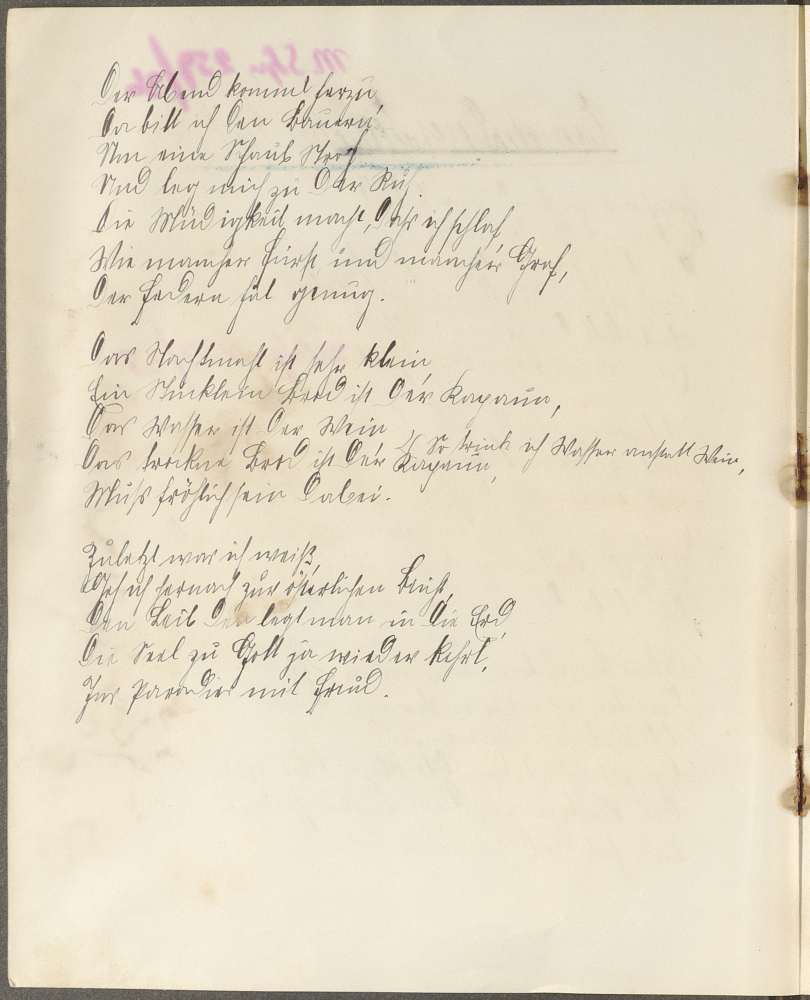 Der Abend kommt herzu,
Da bitt ich den Bauern,
Um eine Schaub Stroh
Und leg mich zu der Ruh.
Die Müdigkeit macht, daß ich schlaf,
Wie mancher Fürst und mancher Graf,
Der Federn hat genug.
Das Nachtmahl ist sehr klein,
Ein Stücklein Brod ist der Kapaun,
Das Wasser ist der Wein
Das trockne Brod ist der Kapaun,
So trink ich Wasser anstatt Wein,
Muß fröhlich sein dabei.
Zuletzt was ich weiß,
Geh ich hernach zur
Den Leib den legt man in die Erd,
Die Seel zu Gott ja wieder kehrt,
Ins Paradies mit Freud.